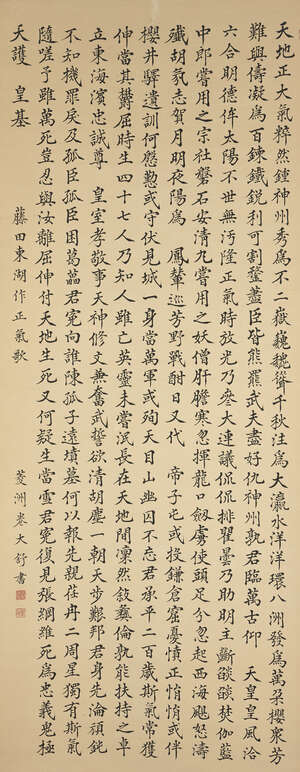 天地正大氣粹然鍾神州秀爲不二嶽巍巍聳千秋注爲大瀛水洋洋環八洲發爲萬朶櫻衆芳
難與儔凝爲百鍊鐵鋭利可割鍪藎臣皆熊羆武夫盡好仇神州孰君臨萬古仰 天皇皇風洽
六合明德侔太陽不世無汚隆正氣時放光乃參大連議侃侃排瞿曇乃助明主斷燄燄焚伽藍
中郎嘗用之宗社磐石安清丸嘗用之妖僧肝膽寒忽揮龍口劒虜使頭足分忽起西海颶怒濤
殲胡氛志賀月明夜陽爲 鳳輦巡芳野戰酣日又代 帝子屯或投鎌倉窟憂憤正悄悄或伴
櫻井驛遺訓何慇懃或守伏見城一身當萬軍或殉天目山幽囚不忘君承平二百歳斯氣常獲
伸當其鬱屈時生四十七人乃知人雖亡英靈未嘗泯長在天地間凛然敍彝倫孰能扶持之卓
立東海濱忠誠尊 皇室孝敬事天神修文兼奮武誓欲清胡塵一朝天歩艱邦君身先淪頑鈍
不知機罪戾及孤臣孤臣困葛藟君冤向誰陳孤子遠墳墓何以報先親荏苒二周星獨有斯氣
隨嗟予雖萬死豈忍與汝離屈伸付天地生死又何疑生當雪君冤復見張綱維死爲忠義鬼極
天護 皇基
藤田東湖作正氣歌
菱洲卷大舒書